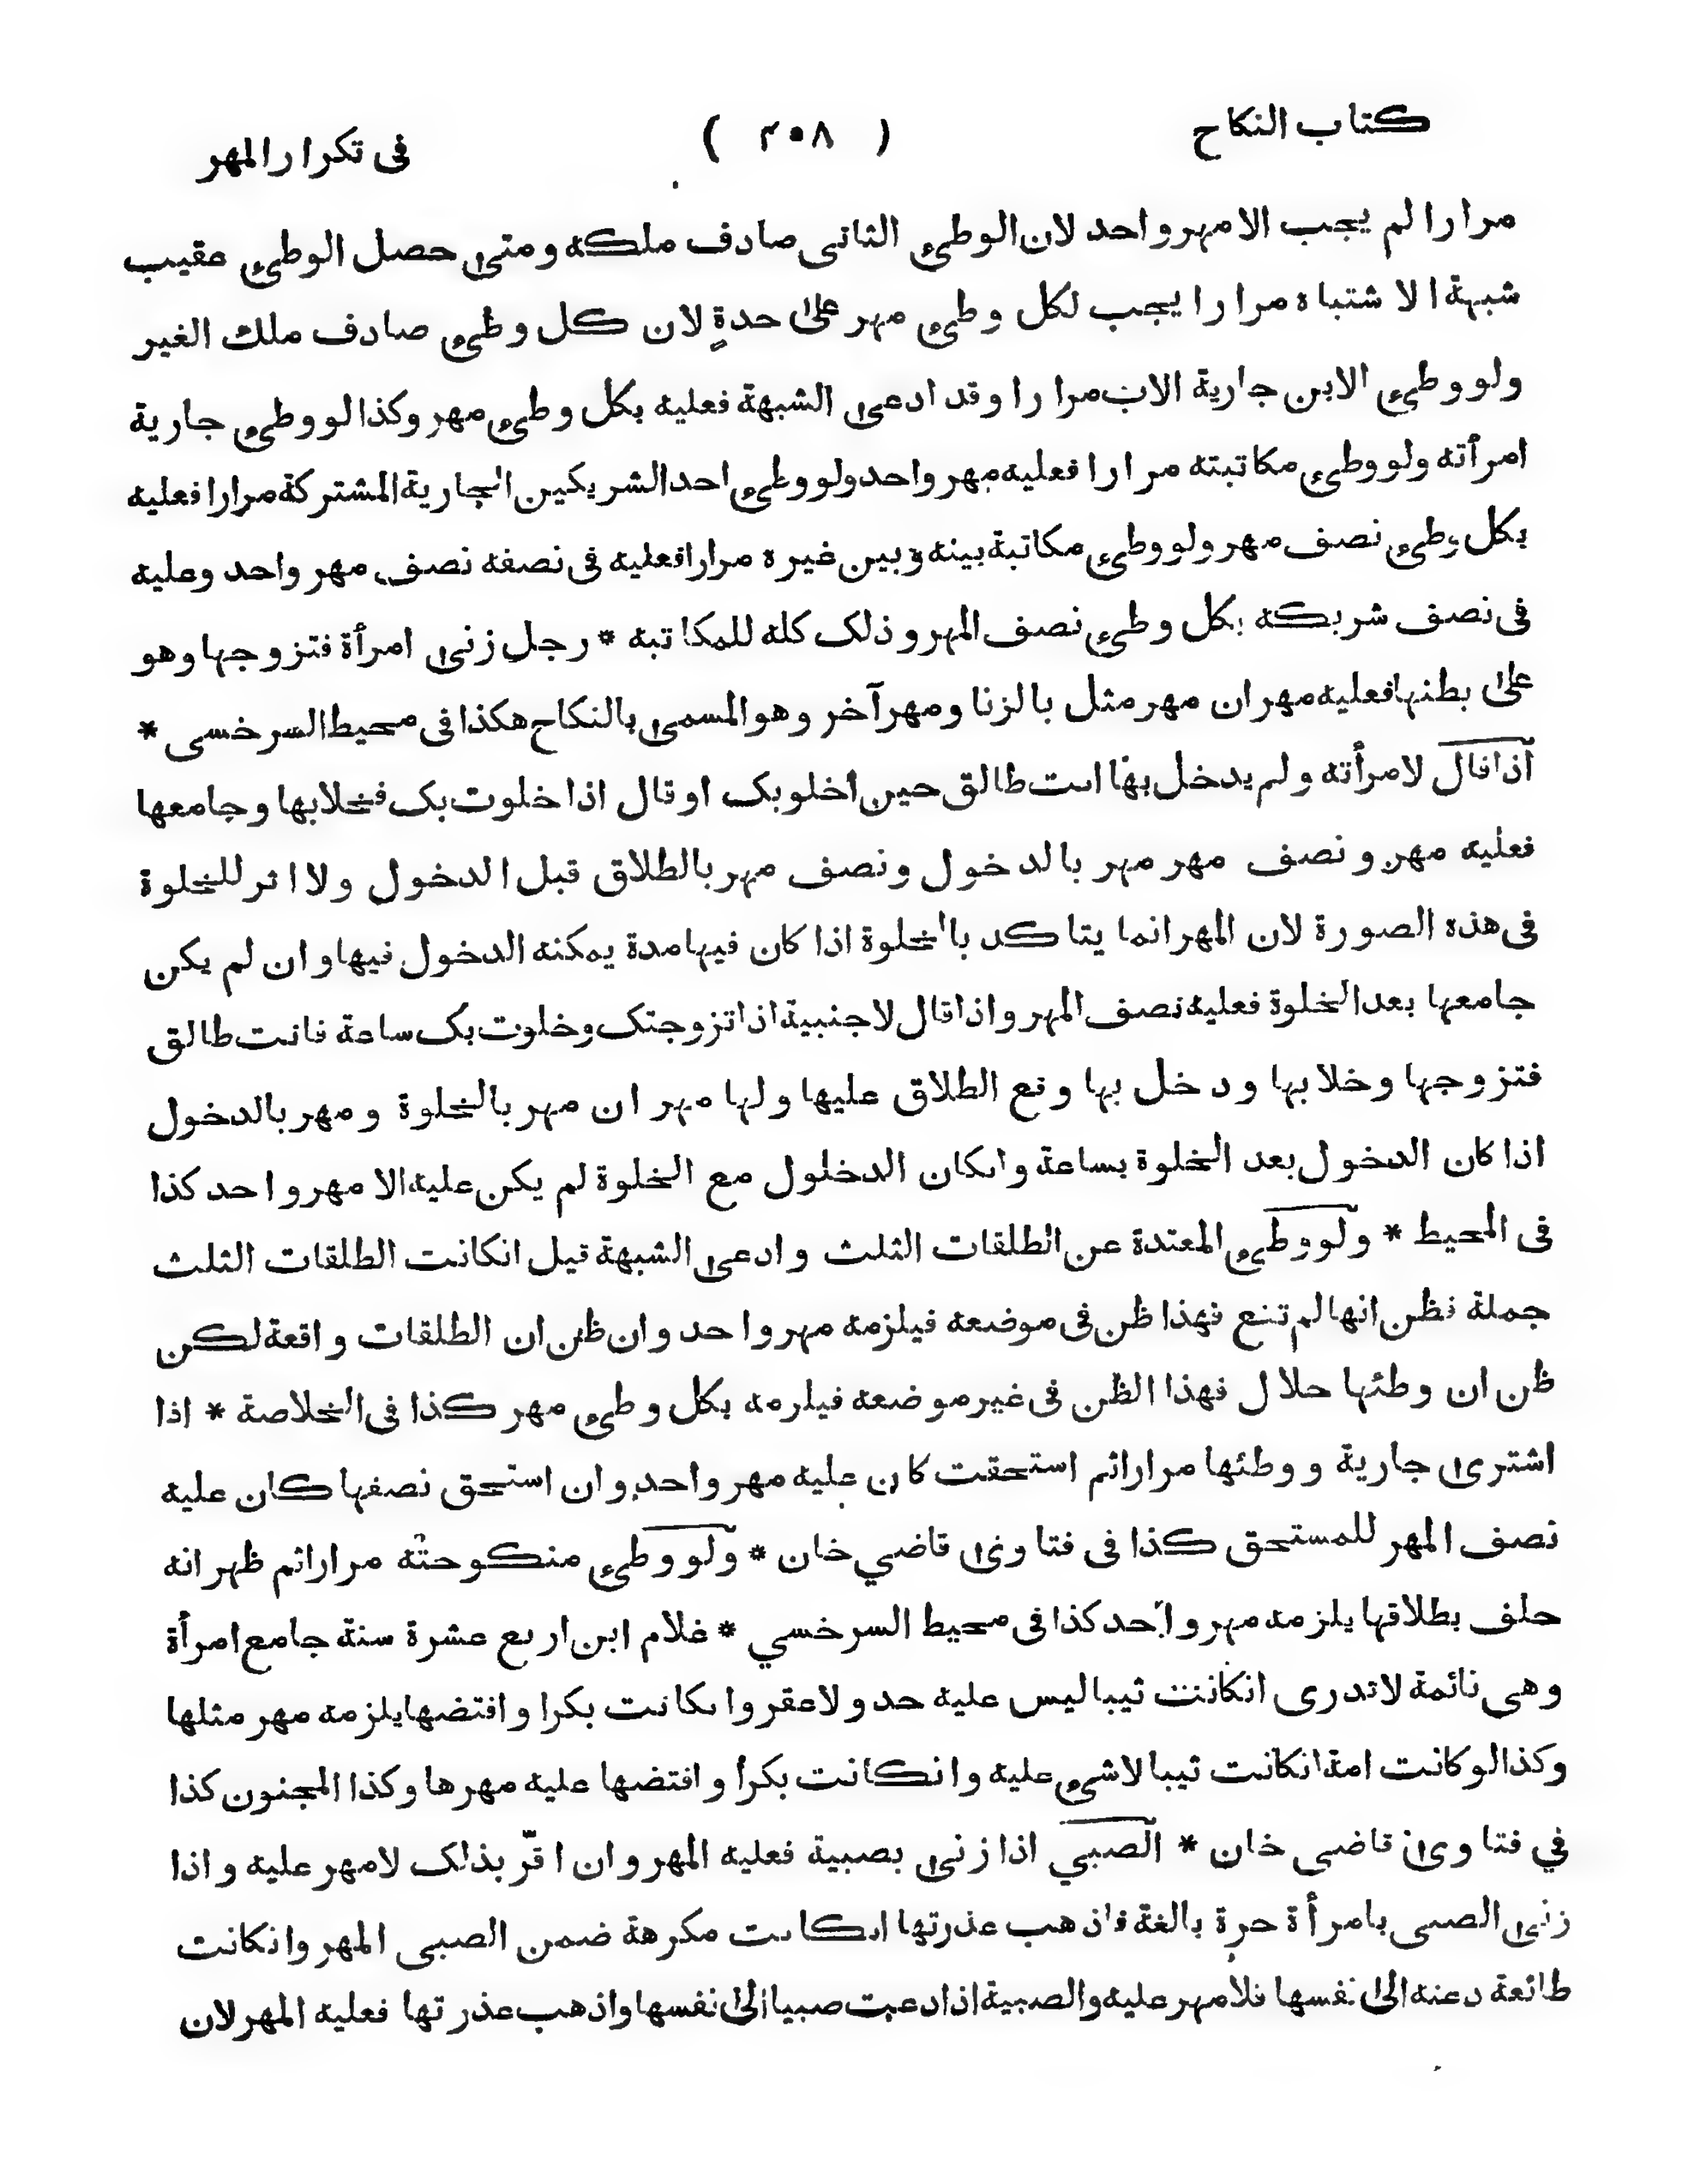 كتاب النكاح ( ٣٠٨ ) فى تكرار المهر
مرارا لم يجب الا مهر واحد لان الوطئ الثانى صادف ملكه ومتى حصل الوطئ عقيب
شبهة الاشتباه مرارا يجب لكل وطئ مهر على حدةٍ لان كل وطئ صادف ملك الغير
ولو وطئ الابن جارية الاب مرارا وقد ادعى الشبهة فعليه بكل وطئ مهر وكذا لو وطئ جارية
امرأته ولو وطئ مكاتبته مرارا فعليه مهر واحد ولو وطئ احد الشريكين الجارية المشتركة مرارا فعليه
بكل وطئ نصف مهر ولو وطئ مكاتبة بينه وبين غيره مرارا فعليه فى نصفه نصف مهر واحد وعليه
فى نصف شريكه بكل وطئ نصف المهر وذلك كله للمكاتبه * رجل زنى امرأة فتزوجها وهو
على بطنها فعليه مهران مهر مثل بالزنا ومهر آخر وهو المسمى بالنكاح هكذا فى محيط السرخسى *
اذا قال لامرأته ولم يدخل بها انت طالق حين اخلو بك او قال اذا خلوت بك فخلا بها وجامعها
فعليه مهر ونصف مهر مهر بالدخول ونصف مهر بالطلاق قبل الدخول ولا اثر للخلوة
فى هذه الصورة لان المهر انما يتاكد بالخلوة اذا كان فيها مدة يمكنه الدخول فيها وان لم يكن
جامعها بعد الخلوة فعليه نصف المهر واذا قال لاجنبية اذا تزوجتك وخلوت بك ساعة فانت طالق
فتزوجها وخلا بها ودخل بها وقع الطلاق عليها ولها مهران مهر بالخلوة ومهر بالدخول
اذا كان الدخول بعد الخلوة بساعة وانكان الدخلول مع الخلوة لم يكن عليه الا مهر واحد كذا
فى المحيط * ولو وطئ المعتدة عن الطلقات الثلث وادعى الشبهة قيل انكانت الطلقات الثلث
جملة فظن انها لم تقع فهذا ظن فى موضعه فيلزمه مهر واحد وان ظن ان الطلقات واقعة لكن
ظن ان وطئها حلال فهذا الظن فى غير موضعه فيلزمه بكل وطئ مهر كذا فى الخلاصة * اذا
اشترى جارية ووطئها مرارا ثم استحقت كان عليه مهر واحد وان استحق نصفها كان عليه
نصف المهر للمستحق كذا فى فتاوى قاضي خان * ولو وطئ منكوحته مرارا ثم ظهر انه
حلف بطلاقها يلزمه مهر واحد كذا فى محيط السرخسي * غلام ابن اربع عشرة سنة جامع امرأة
وهى نائمة لاتدرى انكانت ثيبا ليس عليه حد ولا عقر وانكانت بكرا وافتضها يلزمه مهر مثلها
وكذا لو كانت امة انكانت ثيبا لاشئ عليه وانكانت بكرا وافتضها عليه مهرها وكذا المجنون كذا
في فتاوى قاضى خان * الصبي اذا زنى بصبية فعليه المهر وان اقرّ بذلك لامهر عليه واذا
زنى الصبى بامرأة حرة بالغة فاذهب عذرتها انكانت مكرهة ضمن الصبى المهر وانكانت
طائعة دعته الى نفسها فلا مهر عليه والصبية اذا دعت صبيا الى نفسها واذهب عذرتها فعليه المهر لان